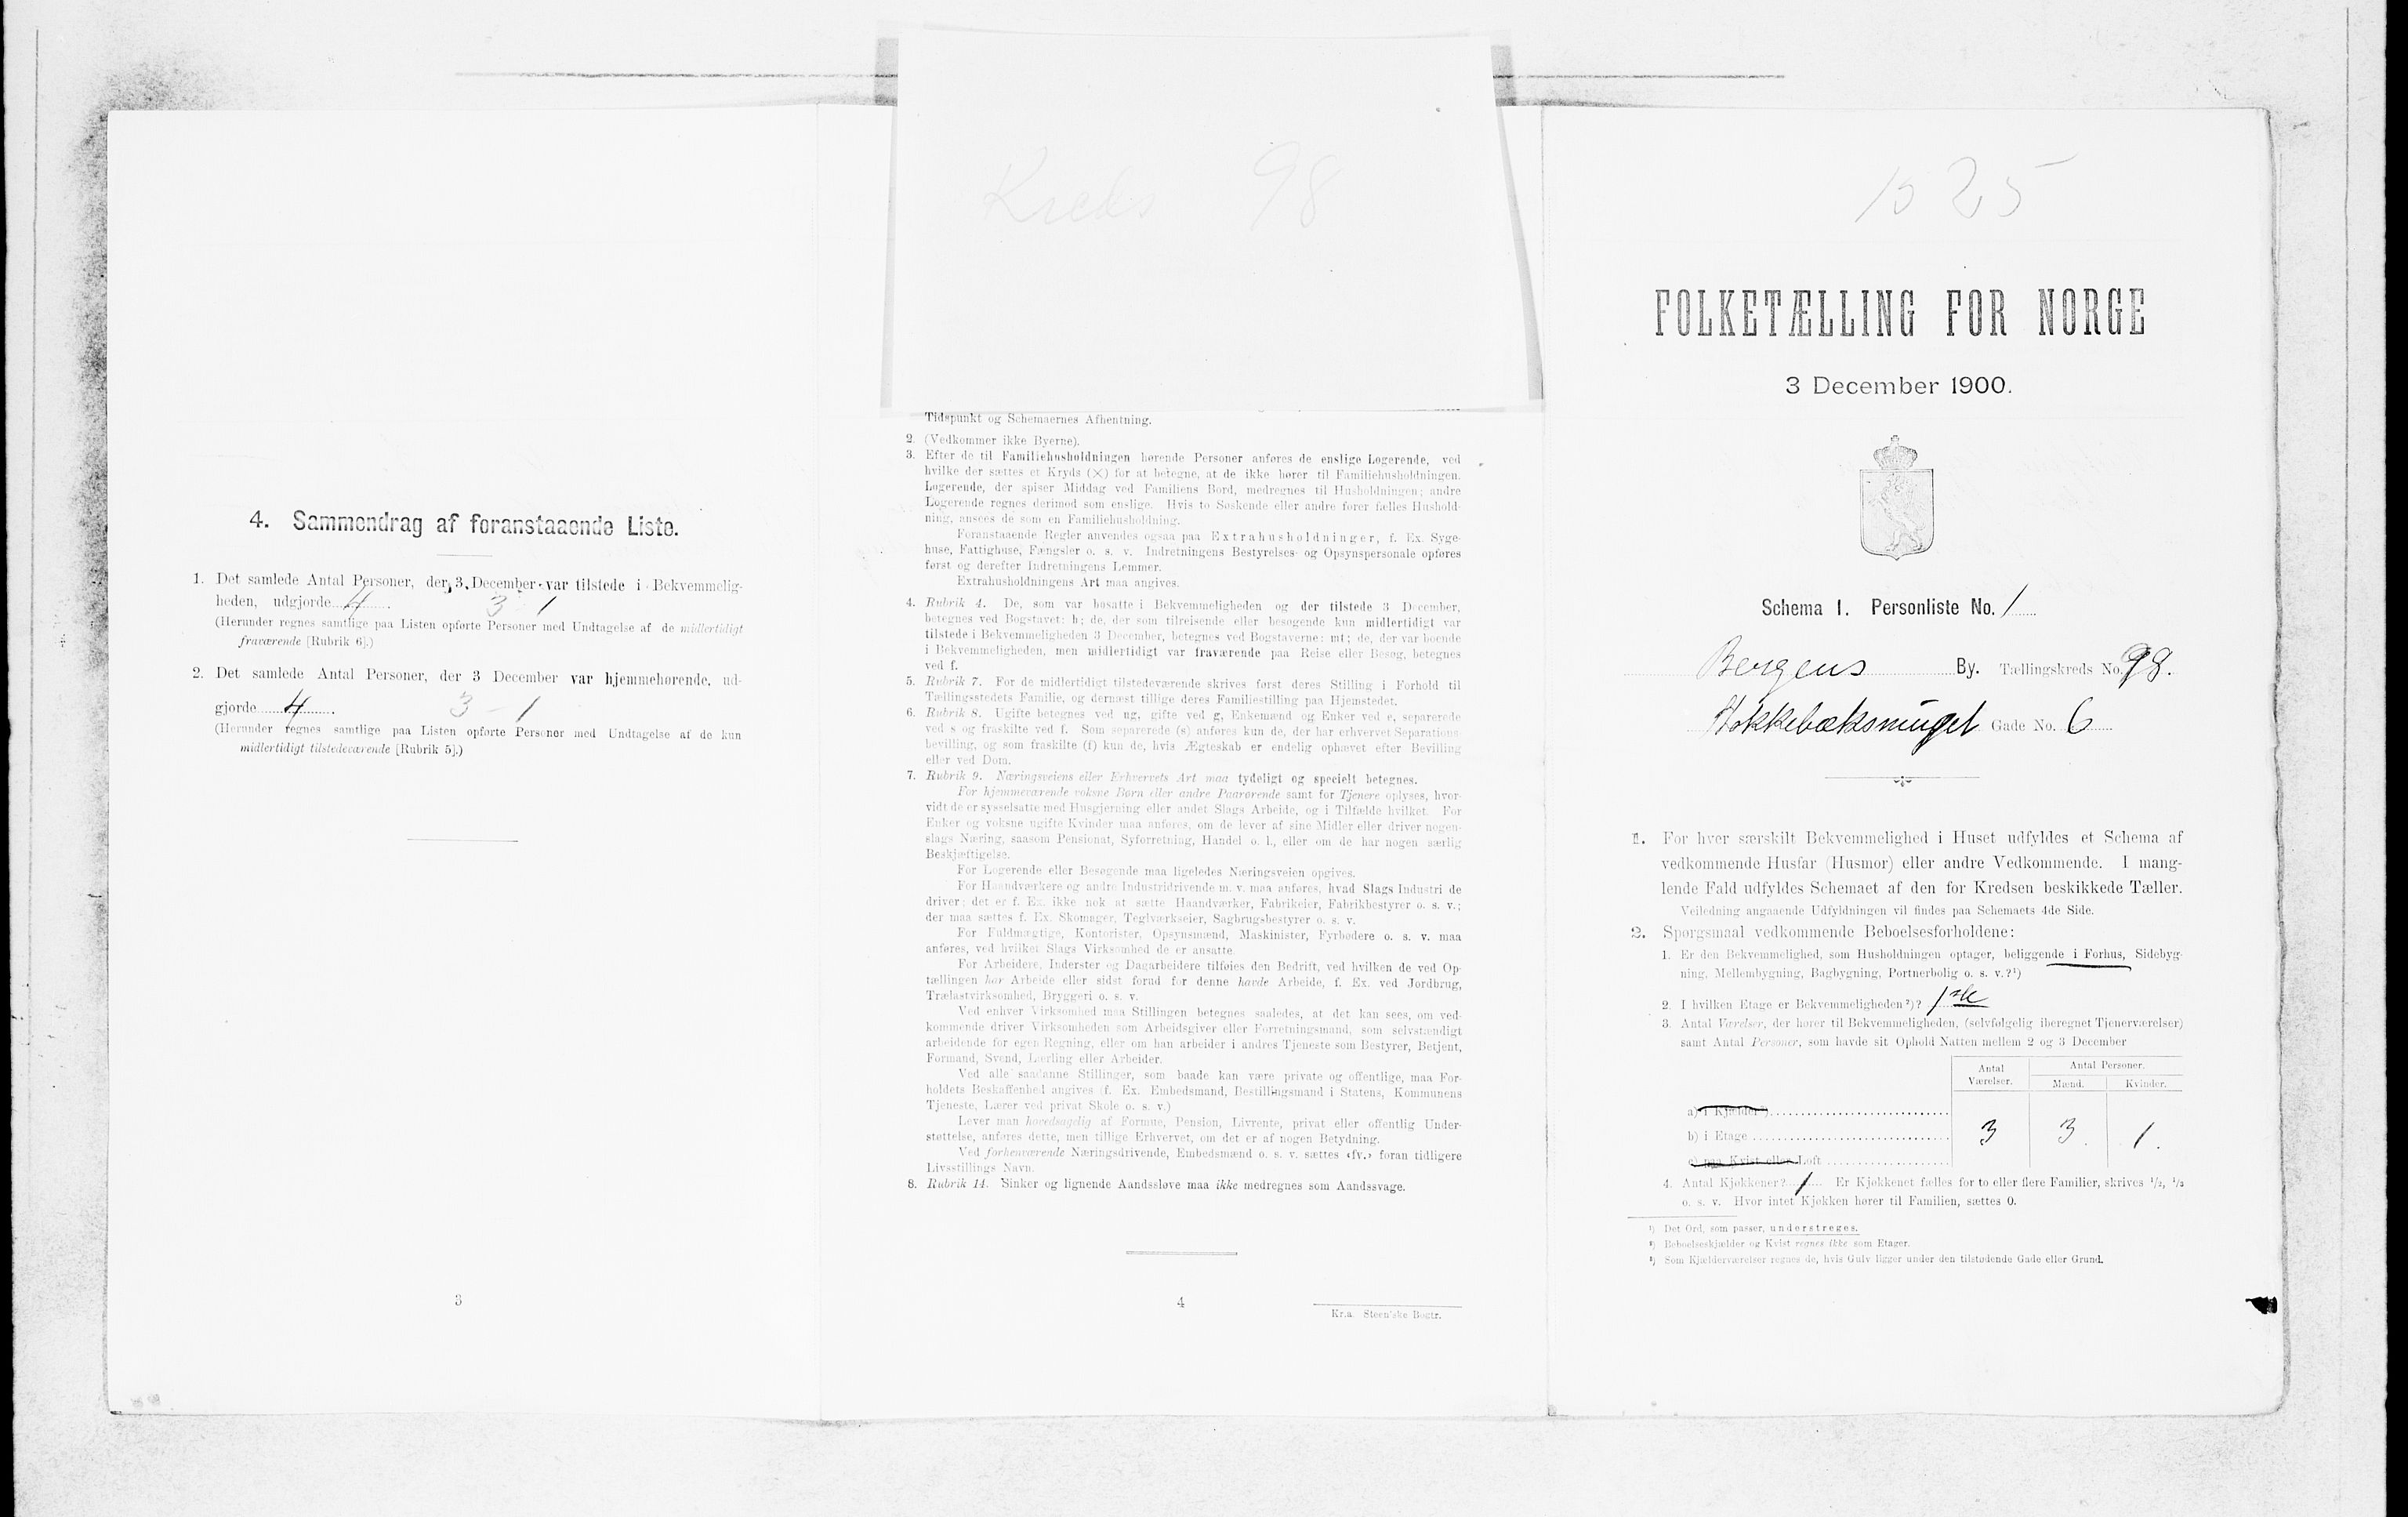 4. Sammendrag af foranstaaende Liste.
1. Det samlede Antal Personer, der 3 December var tilstede i Bekvemmelig-
heden, udgjorde 4. 3 1
(Herunder regnes samtlige paa Listen opførte Personer med Undtagelse af de midlertidigt
fraværende [Rubrik 6].)
2. Det samlede Antal Personer, der 3 December var hjemmehørende, ud-
gjorde 4. 3 – 1
(Herunder regnes samtlige paa Listen opførte Personer med Undtagelse af de kun
midlertidigt tilstedeværende [Rubrik 5].)
3
Kreds 98
Tidspunkt og Schemaernes Afhentning.
2. (Vedkommer ikke Byerne).
3. Efter de til Familiehusholdningen hørende Personer anføres de enslige Logerende, ved
hvilke der sættes et Kryds (×) for at betegne, at de ikke hører til Familiehusholdningen.
Logerende, der spiser Middag ved Familiens Bord, medregnes til Husholdningen; andre
Logerende regnes derimod som enslige. Hvis to Søskende eller andre fører fælles Hushold-
ning, ansees de som en Familiehusholdning.
Foranstaaende Regler anvendes ogsaa paa Extrahusholdninger, f. Ex. Syge-
huse, Fattighuse, Fængsler o. s. v. Indretningens Bestyrelses- og Opsynspersonale opføres
først og derefter Indretningens Lemmer.
Extrahusholdningens Art maa angives.
4. Rubrik 4. De, som var bosatte i Bekvemmeligheden og der tilstede 3 December,
betegnes ved Bogstavet: b; de, der som tilreisende eller besøgende kun midlertidigt var
tilstede i Bekvemmeligheden 3 December, betegnes ved Bogstaverne: mt; de, der var boende
i Bekvemmeligheden, men midlertidigt var fraværende paa Reise eller Besøg, betegnes
ved f.
5. Rubrik 7. For de midlertidigt tilstedeværende skrives først deres Stilling i Forhold til
Tællingsstedets Familie, og dernæst tillige deres Familiestilling paa Hjemstedet.
6. Rubrik 8. Ugifte betegnes ved ug, gifte ved g, Enkemænd og Enker ved e, separerede
ved s og fraskilte ved f. Som separerede (s) anføres kun de, der har erhvervet Separations-
bevilling, og som fraskilte (f) kun de, hvis Ægteskab er endelig ophævet efter Bevilling
eller ved Dom.
7. Rubrik 9. Næringsveiens eller Erhvervets Art maa tydeligt og specielt betegnes.
For hjemmeværende voksne Børn eller andre Paarørende samt for Tjenere oplyses, hvor-
vidt de er sysselsatte med Husgjerning eller andet Slags Arbeide, og i Tilfælde hvilket. For
Enker og voksne ugifte Kvinder maa anføres, om de lever af sine Midler eller driver nogen-
slags Næring, saasom Pensionat, Syforretning, Handel o. l., eller om de har nogen særlig
Beskjæftigelse.
For Logerende eller Besøgende maa ligeledes Næringsveien opgives.
For Haandværkere og andre Industridrivende m. v. maa anføres, hvad Slags Industri de
driver; det er f. Ex. ikke nok at sætte Haandværker, Fabrikeier, Fabrikbestyrer o. s. v.;
der maa sættes f. Ex. Skomager, Teglværkseier, Sagbrugsbestyrer o. s. v.
For Fuldmægtige, Kontorister, Opsynsmænd, Maskinister, Fyrbødere o. s. v. maa
anføres, ved hvilket Slags Virksomhed de er ansatte.
For Arbeidere, Inderster og Dagarbeidere tilføies den Bedrift, ved hvilken de ved Op-
tællingen har Arbeide eller sidst forud for denne havde Arbeide, f. Ex. ved Jordbrug,
Trælastvirksomhed, Bryggeri o. s. v.
Ved enhver Virksomhed maa Stillingen betegnes saaledes, at det kan sees, om ved-
kommende driver Virksomheden som Arbeidsgiver eller Forretningsmand, som selvstændigt
arbeidende for egen Regning, eller om han arbeider i andres Tjeneste som Bestyrer, Betjent,
Formand, Svend, Lærling eller Arbeider.
Ved alle saadanne Stillinger, som baade kan være private og offentlige, maa For-
holdets Beskaffenhed angives (f. Ex. Embedsmand, Bestillingsmand i Statens, Kommunens
Tjeneste, Lærer ved privat Skole o. s. v.)
Lever man hovedsagelig af Formue, Pension, Livrente, privat eller offentlig Under-
støttelse, anføres dette, men tillige Erhvervet, om det er af nogen Betydning.
Ved forhenværende Næringsdrivende, Embedsmænd o. s. v. sættes «fv.» foran tidligere
Livsstillings Navn.
8. Rubrik 14. Sinker og lignende Aandssløve maa ikke medregnes som Aandssvage.
4
Kr.a. Steen'ske Bogtr.
1525
FOLKETÆLLING FOR NORGE
3 December 1900.
Schema 1. Personliste No. 1
Bergens By. Tællingskreds No. 98.
Gade No. 6
1. For hver særskilt Bekvemmelighed i Huset udfyldes et Schema af
vedkommende Husfar (Husmor) eller andre Vedkommende. I mang-
lende Fald udfyldes Schemaet af den for Kredsen beskikkede Tæller.
Veiledning angaaende Udfyldningen vil findes paa Schemaets 4de Side.
2. Spørgsmaal vedkommende Beboelsesforholdene:
1. Er den Bekvemmelighed, som Husholdningen optager, beliggende i Forhus, Sidebyg-
ning, Mellembygning, Bagbygning, Portnerbolig o. s. v.?¹)
2. I hvilken Etage er Bekvemmeligheden²)? 1ste
3. Antal Værelser, der hører til Bekvemmeligheden, (selvfølgelig iberegnet Tjenerværelser)
samt Antal Personer, som havde sit Ophold Natten mellem 2 og 3 December
Antal Værelser. Antal Personer.
Mænd. Kvinder.
a) i Kjælder³)
b) i Etage 3 3. 1.
c) paa Kvist eller Loft
4. Antal Kjøkkener? 1 Er Kjøkkenet fælles for to eller flere Familier, skrives ¹/₂, ¹/₃
o. s. v. Hvor intet Kjøkken hører til Familien, sættes 0.
¹) Det Ord, som passer, understreges.
²) Beboelseskjælder og Kvist regnes ikke som Etager.
³) Som Kjælderværelser regnes de, hvis Gulv ligger under den tilstødende Gade eller Grund.